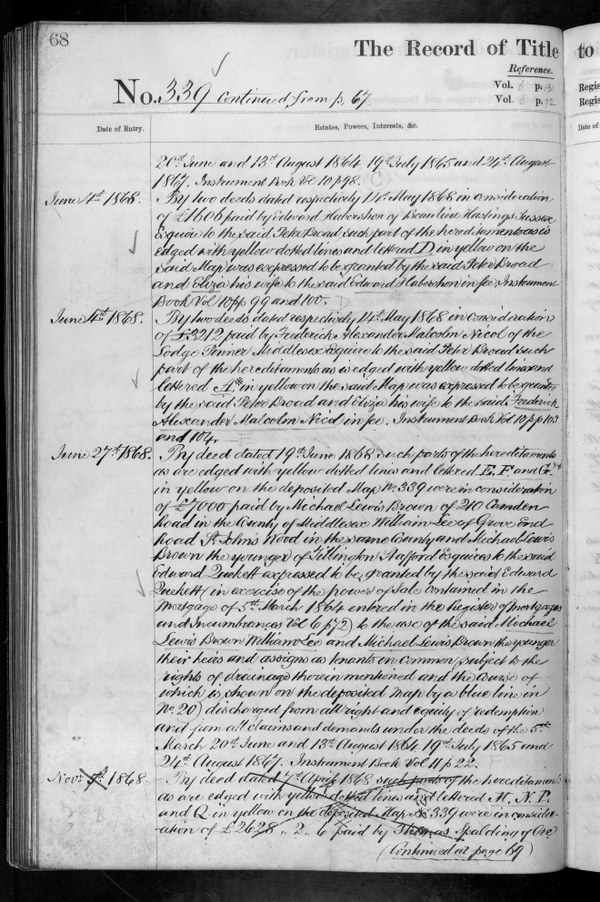 68
The Record of Title
to
Reference.
Vol. 6 p. 31
Vol. 6 p. 72
Regis
Regis
No. 339 Continued from p. 67
Date of Entry.
Estates, Powers, Interests, &c.
Date of
20th June and 13th August 1864 19th July 1865 and 24th August
1867. Instrument Book Vol 10 p 98.
June 4th 1868. By two deeds dated respectively 14th May 1868 in consideration
of £1606 paid by Edward Habershon of Beaulieu Hastings Sussex
Esquire to the said Peter Broad such part of the hereditaments as is
edged with yellow dotted lines and lettered D, in yellow on the
said Map was expressed to be granted by the said Peter Broad
and Eliza his wife to the said Edward Habershon in fee Instrument
Book Vol 10 pp 99 and 100.
June 4th 1868. By two deeds dated respectively 14th May 1868 in consideration
of £3212 paid by Frederick Alexander Malcolm Nicol of the
Lodge Pinner Middlesex Esquire to the said Peter Broad such
part of the hereditaments as is edged with yellow dotted lines and
lettered A in yellow on the said Map was expressed to be granted
by the said Peter Broad and Eliza his wife to the said Frederick
Alexander Malcolm Nicol in fee. Instrument Book Vol 10 pp 103
and 104.
June 27th 1868. By deed dated 19th June 1868 such parts of the hereditaments
as are edged with yellow dotted lines and lettered E, F and G
in yellow on the deposited Map No 339 were in consideration
of £7000 paid by Michael Lewis Brown of 210 Camden
Road in the County of Middlesex William Lee of Grove End
Road St Johns Wood in the same County and Michael Lewis
Brown the younger of Tillington Stafford Esquires to the said
Edward Tuckett expressed to be granted by the said Edward
Tuckett (in exercise of the power of Sale contained in the
Mortgage of 5th March 1864 entered in the Register of Mortgages
and Incumbrances Vol 6 p 72) to the use of the said Michael
Lewis Brown William Lee and Michael Lewis Brown the younger
their heirs and assigns as tenants in common, subject to the
rights of drainage therein mentioned and the course of
which is shown on the deposited Map by a blue line in
No 20) discharged from all right and equity of redemption
and from all claims and demands under the deeds of the 5th
March 20th June and 13th August 1864 19th July 1865 and
24th August 1867. Instrument Book Vol 11 p 22.
Novr 1868 By deed dated 7th April 1868 such parts of the hereditaments
as are edged with yellow dotted lines and lettered M, N, P
and Q in yellow on the deposited Map No 339 were in consider-
ation of £2628. 2. 6 paid by Thomas Spalding of Ore
(Continued at page 69)